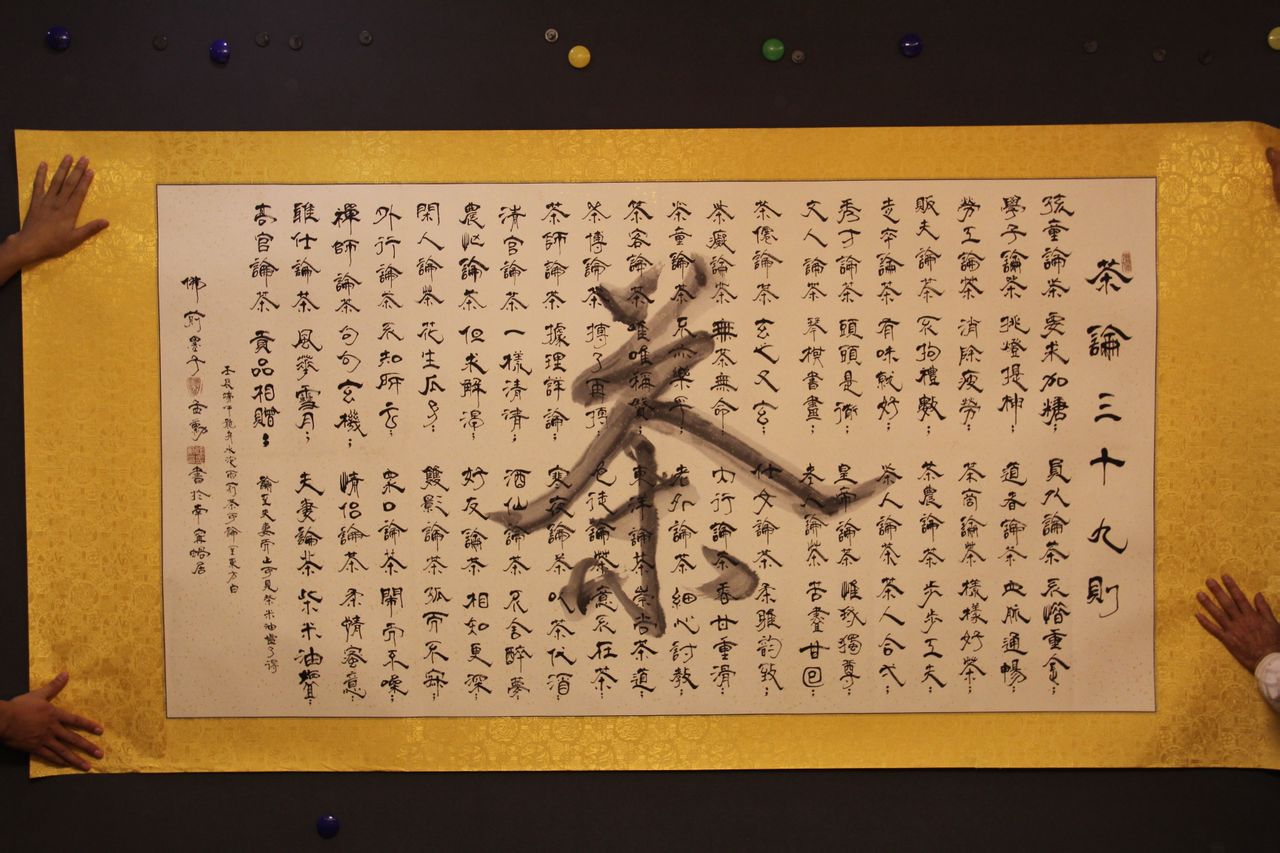 茶論三十九則
孩童論茶 要求加糖；
學子論茶 挑燈提神；
勞工論茶 消除疲勞；
販夫論茶 不拘禮數；
走卒論茶 有味就好；
秀才論茶 頭頭是道；
文人論茶 琴棋書畫；
茶僊論茶 玄之又玄；
茶癡論茶 無茶無命；
茶童論茶
茶客論茶 唯唯稱贊；
茶博論茶
茶師論茶 據理評論；
清官論茶 一樣清清；
農忙論茶 但求解渴；
閑人論茶 花生瓜子；
外行論茶 不知所云；
禪師論茶 句句玄機；
雅仕論茶 風花雪月；
高官論茶 貢品相贈；
員外論茶 不惜重金；
道者論茶 血脈通暢；
茶商論茶 樣樣好茶；
茶農論茶 步步工夫；
茶人論茶 茶人合弌；
皇帝論茶 惟我獨尊；
論茶 苦盡甘回；
仕女論茶 柔雅韵致；
內行論茶 香甘重滑；
老外論茶 細心討教；
東洋論茶 崇尚茶道；
色徒論茶 意不在茶；
寒夜論茶 以茶代酒；
酒仙論茶 不舍醉夢；
好友論茶 相知更深；
雙影論茶 孤而不孤；
眾口論茶 鬧而不噪；
情侶論茶 柔情蜜意；
夫妻論茶 柴米油鹽；
論至夫妻而止可見柴米油鹽了得
論至東方白
佛 墨子 書於南
茶